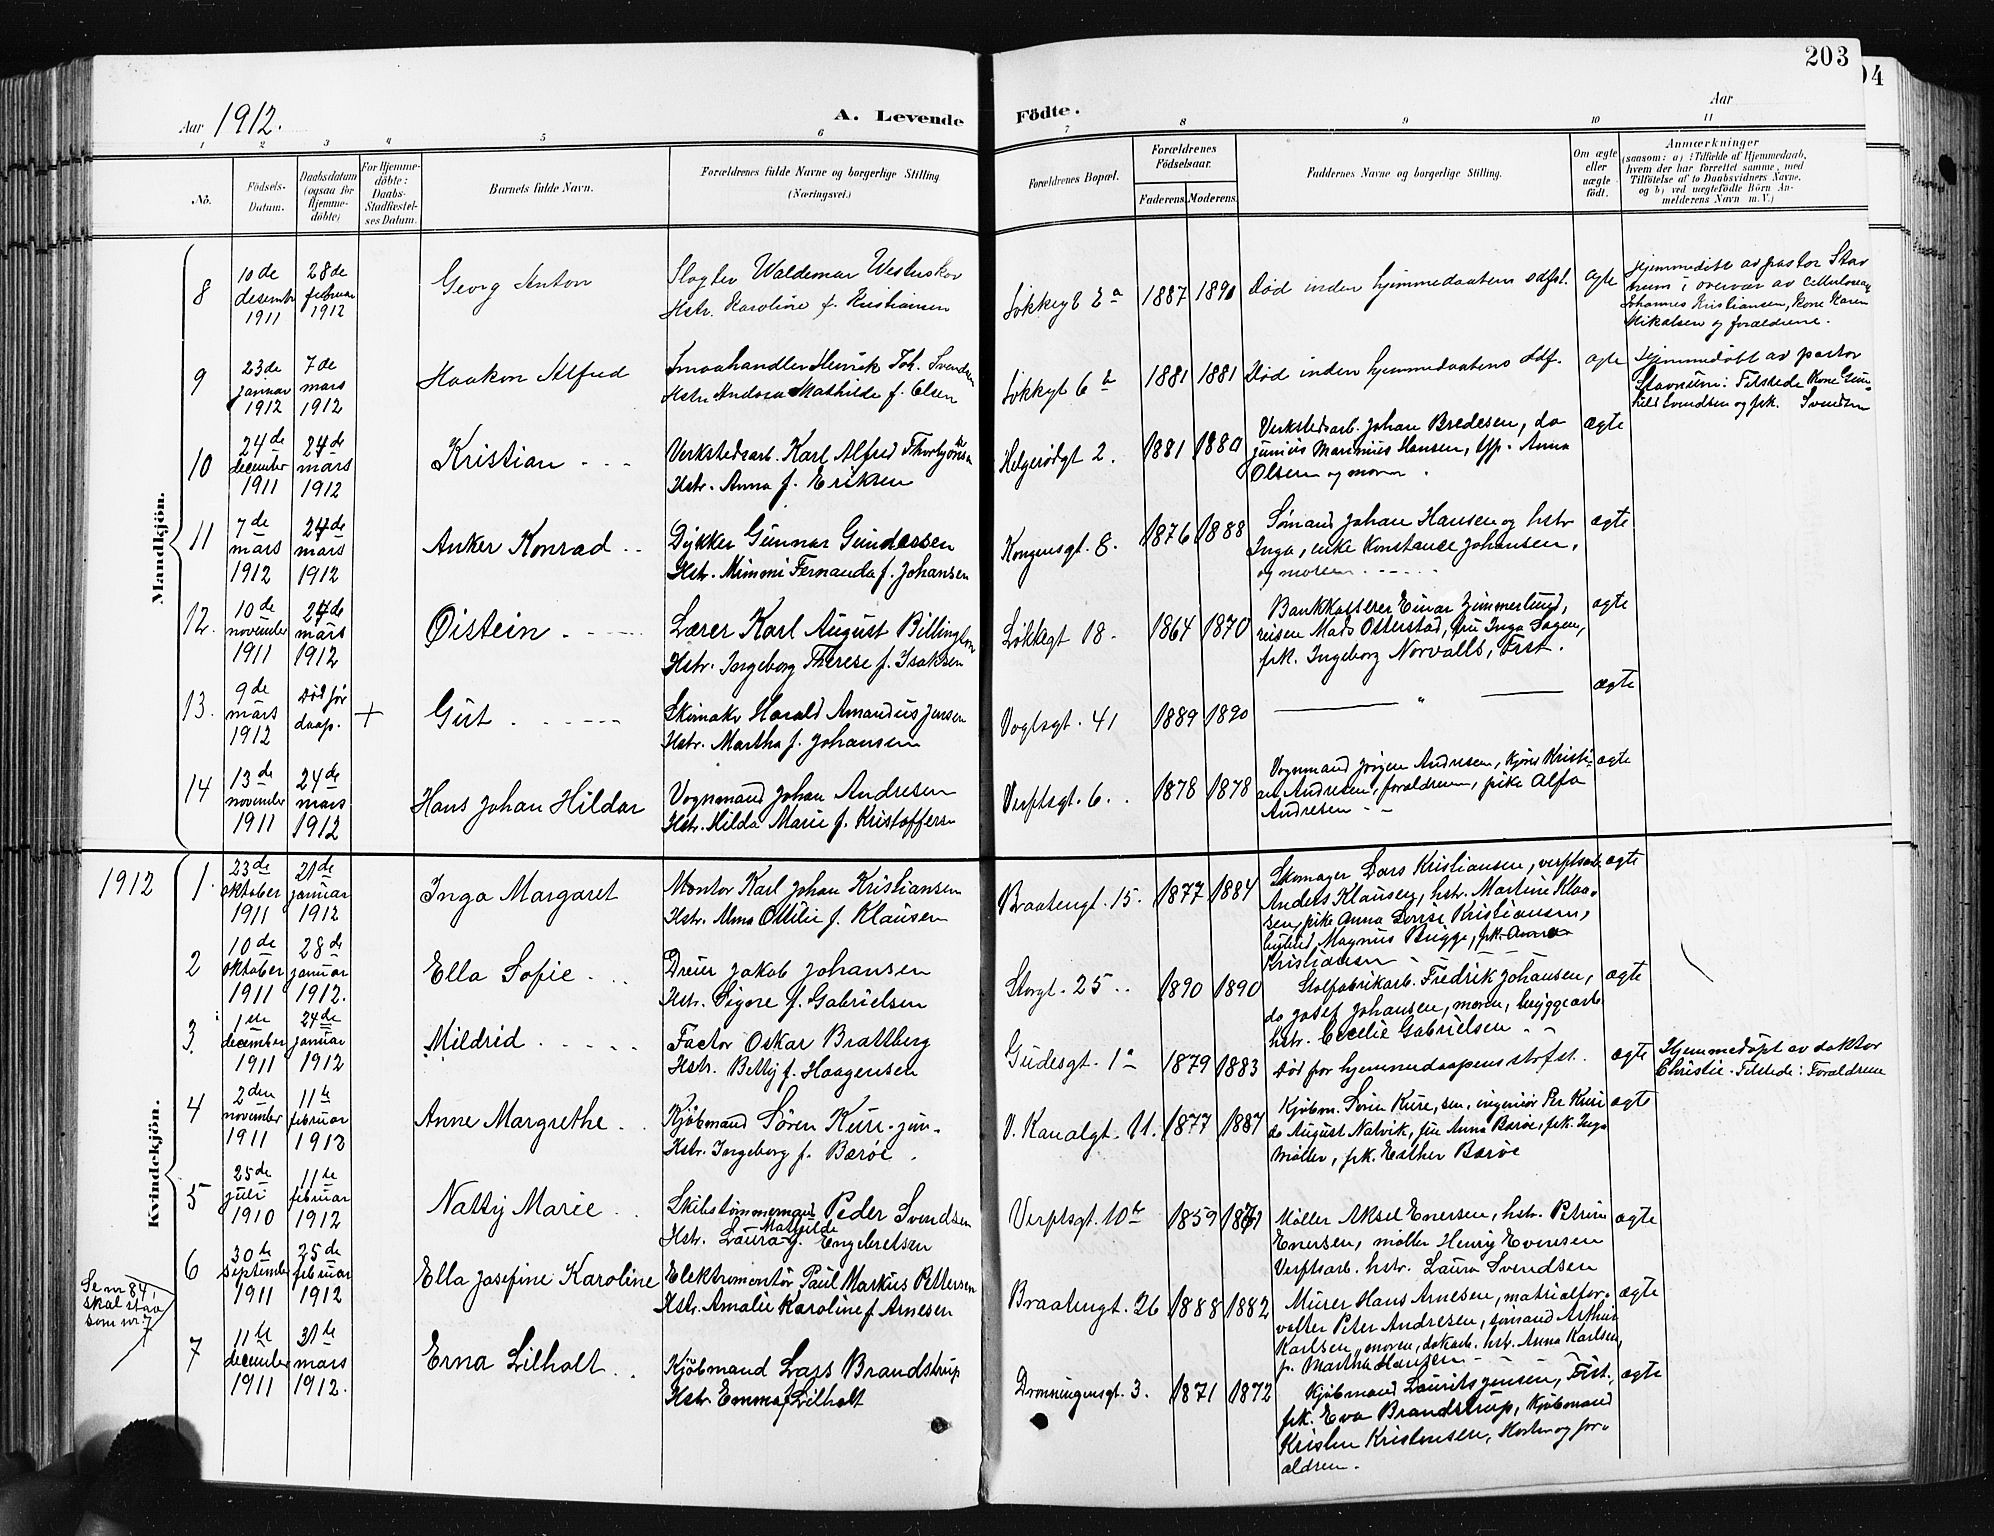 203
04
Aar 1912.
A. Levende Födte.
Aar
1 2 3 4 5 6 7 8 9 10 11
No.
Födsels-
Datum.
Daabsdatum
(ogsaa for
Hjemme-
döbte)
For Hjemme-
döbte:
Daabs-
Stadfæstel-
ses Datum.
Barnets fulde Navn.
Forældrenes fulde Navne og borgerlige Stilling
(Næringsvei.)
Forældrenes Bopæl.
Forældrenes
Födselsaar.
Faderens. Moderens.
Faddernes Navne og borgerlige Stilling.
Om ægte
eller
uægte
födt.
Anmærkninger
(saasom: a) i Tilfælde af Hjemmedaab,
hvem der har forrettet samme, med
Tilföielse af to Daabsvidners Navne,
og b) ved uægtefödte Börn An-
melderens Navn m. V.)
Mandkjön.
8
10de
desembr
1911
28de
februar
1912
Georg Anton
Waldemar
Hstr. Karoline f. Kristiansen
Løkkegt 2a
1887
Død inden hjemmedaabens
ægte
Hjemmedøbt av pastor Stav
i overvær av
Johannes Kristiansen, Kone Karen
Mikalsen og forældrene.
9
23de
januar
1912
7de
mars
1912
Haakon Alfred
Smaahandler Henrik Joh. Svendsen
Hstr Mathilde f. Olsen
1881 1881
Død inden hjemmedaabens
ægte
Hjemmedøbt av pastor
Tilstede Kone Gun-
hild Svendsen og frk. Svendsen
10
24de
december
1911
24de
mars
1912
Kristian
Verkstedsarb. Karl Alfred
Hstr. Anna f. Eriksen
Helgerødgt 2.
1881 1880
Verkstedsarb. Johan Bredesen, do
Marinius Hansen, Anna
Olsen og moren.
ægte
11
7de
mars
1912
24de
mars
1912
Anker Konrad
Dykker Gunnar Gundersen
Hstr. Mimmi Fernanda f. Johansen
Kongensgt. 8.
1876 1888
Sømand Johan Hansen og hstr
Inga, enke Konstance Johansen,
og moren
ægte
12.
10de
november
1911
mars
1912
Øistein
Lærer Karl August Billington
Hstr. Ingeborg Therese f. Isaksen
Løkkegt 18.
1864 1870
Bankkasserer Einar Zimmerlund,
Mads Otterstad, fru Inga Sagen,
frk. Ingeborg Norvalls, Frst.
ægte
13.
9de
mars
1912
Død før
daap.
+
Gut
Skomaker Harald Amandus Jensen
Hstr. Martha f. Johansen
Vogtsgt. 41
1889 1890
"
ægte
14
13de
november
1911
24de
mars
1912
Hans Johan Hildar
Vognmand Johan Andresen
Hstr. Hilda Marie f. Kristoffersen
Verftsgt. 6.
1878 1878
Vognmand Jørgen Andresen, Kristi-
an Andresen, forældrene, pike Alfa
Andresen
ægte
1912
Kvindekjön.
1.
23de
oktober
1911
21de
januar
1912
Inga Margaret
Montør Karl Johan Kristiansen
Hstr. Alma Ottilie f. Klausen
Braatengt. 15.
1877 1884
Skomager Lars Kristiansen, verftsarb
Anders Klausen, hstr. Martine Klau-
sen, pike Anna Kristiansen,
Magnus Brigge, frk. Anna
Kristiansen
ægte
2
10de
oktober
1911
28de
januar
1912.
Ella Sofie
Dreier Jakob Johansen
Hstr. Signe f. Gabrielsen
Storgt. 25
1890 1890
Stolfabrikarb. Fredrik Johansen,
do Josef Johansen, moren, bryggearb
hstr. Cecelie Gabrielsen
ægte
3.
1ste
december
1911
24de
januar
1912
Mildrid
Factor Oskar Brattberg
Hstr. Betty f. Haagensen
Gudesgt. 1a
1879 1883
Død før hjemmedaapens stdfst.
ægte
Hjemmedøpt av doktor
Christie. Tilstede: Forældrene
4
2den
november
1911
11te
februar
1912
Anne Margrethe
Kjøbmand Søren Kure. jun.
Hstr. Ingeborg f. Barøe.
V. Kanalgt. 11.
1877 1887
Kjøbm. Søren Kure, sen. ingeniør Per Kure
do August Natvik, fru Anna Barøe, frk. Inga
Møller, frk. Esther Barøe
ægte
5
25de
juli
1910
11te
februar
1912
Natty Marie
Skibstømmermand Peder Svendsen
Mathilde
Hstr. Laura f. Engebretsen
Verftsgt. 10b
1859
Møller Aksel Enersen, hstr. Petrine
Enersen, møller Henry Evensen
Verftsarb. hstr. Laura Svendsen
ægte
6
30te
september
1911
25de
februar
1912
Ella Josefine Karoline
Elektromontør Paul Markus Pettersen
Hstr. Amalie Karoline f. Arnesen
Braatengt. 26
1888 1882
Murer Hans Arnesen, matrialfor-
valter Peter Andresen, sømand Arthur
Karlsen, moren, dokarb. hstr. Anna Karlsen,
p. Martha Hansen
ægte
Se nr 84,
skal staa
som nr. 7
7
11te
december
1911
31te
mars
1912.
Erna Lilholt
Kjøbmand Lars Brandstrup
Hstr. Emma f. Lilholt
Dronningensgt. 3.
1871 1872
Kjøbmand Laurits Jensen, Frst.,
frk. Eva Brandstrup, Kjøbmand
Kristen Kristensen, Horten og for-
ældren.
ægte